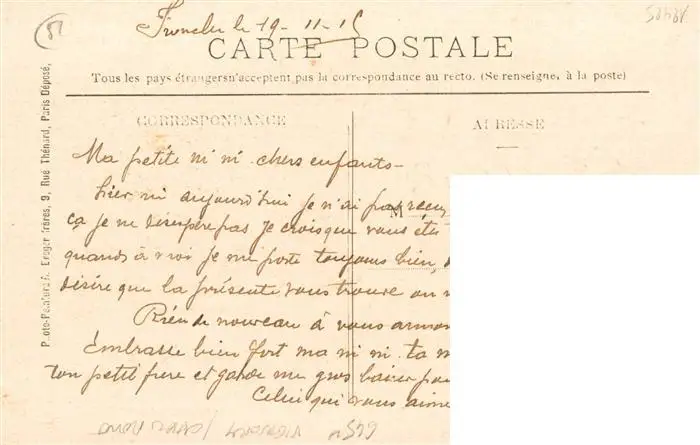 19-11-15
CARTE POSTALE
Tous les pays étrangersn'acceptent pas la correspondance au recto. (Se renseigne, à la poste)
CORRESPONDANCE
ADRESSE
Ma petite ni ni chers enfants-
hier ni aujourd'hui je n'ai pas recu
M
ça je ne desespere pas je crois que vous êtes
quands à moi je me porte toujours bien,
désire que la présente vous trouve
Rien de nouveau à vous
Embrasse bien fort ma ni ni ta
ton petit frere et garde me gros baiser
Celui qui vous aime
Photo-Peinture A. Breger frères, 9, Rue Thénard, Paris Déposé,